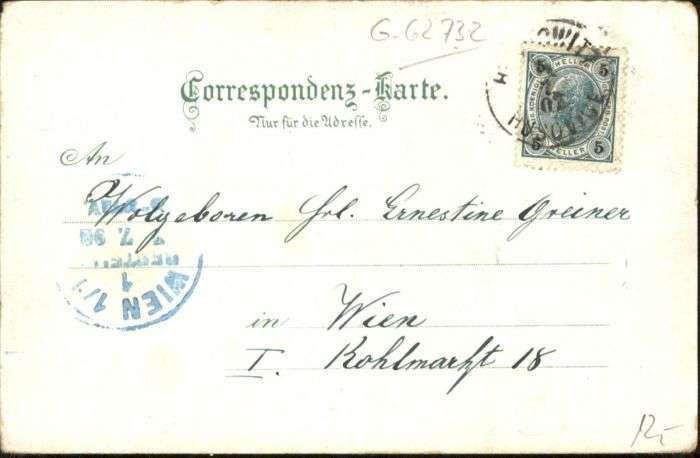 G-G2732
Correspondenz-Karte.
Nur für die Adresse.
5 HELLER 5
5 HELLER 5
An
Wolgeboren Frl. Ernestine Greiner
WIEN 1/1
1
in Wien
I. Kohlmarkt 18
12,-